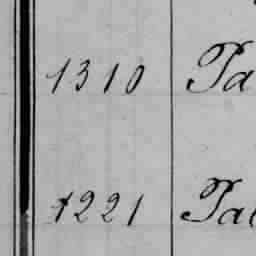 1310 Pa
1221 Pal